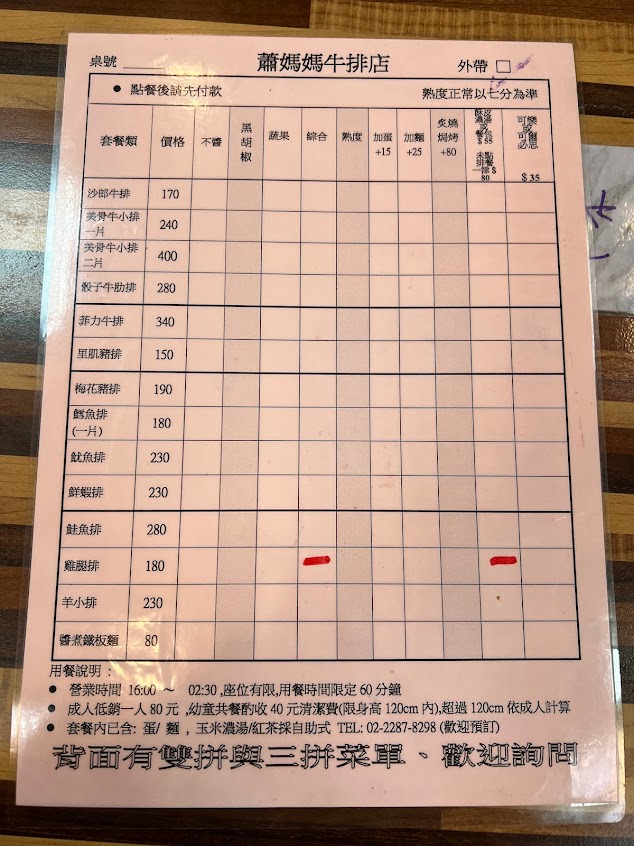 桌號 蕭媽媽牛排店 外帶
● 點餐後請先付款 熟度正常以七分為準
套餐類 價格 不醬 黑胡椒 蔬果 綜合 熟度 加蛋+15 加麵+25 炙燒焗烤+80 酥皮濃湯或餐包$55 未點排餐一律$80 可樂或可爾必思 $35
沙郎牛排 170
美骨牛小排一片 240
美骨牛小排二片 400
骰子牛肋排 280
菲力牛排 340
里肌豬排 150
梅花豬排 190
鱈魚排(一片) 180
魷魚排 230
鮮蝦排 230
鮭魚排 280
雞腿排 180
羊小排 230
醬煮鐵板麵 80
用餐說明：
● 營業時間 16:00 ～ 02:30 ,座位有限,用餐時間限定 60 分鐘
● 成人低銷一人 80 元 ,幼童共餐酌收 40 元清潔費(限身高 120cm 內),超過 120cm 依成人計算
● 套餐內已含: 蛋/ 麵 , 玉米濃湯/紅茶採自助式 TEL: 02-2287-8298 (歡迎預訂)
背面有雙拼與三拼菜單、歡迎詢問